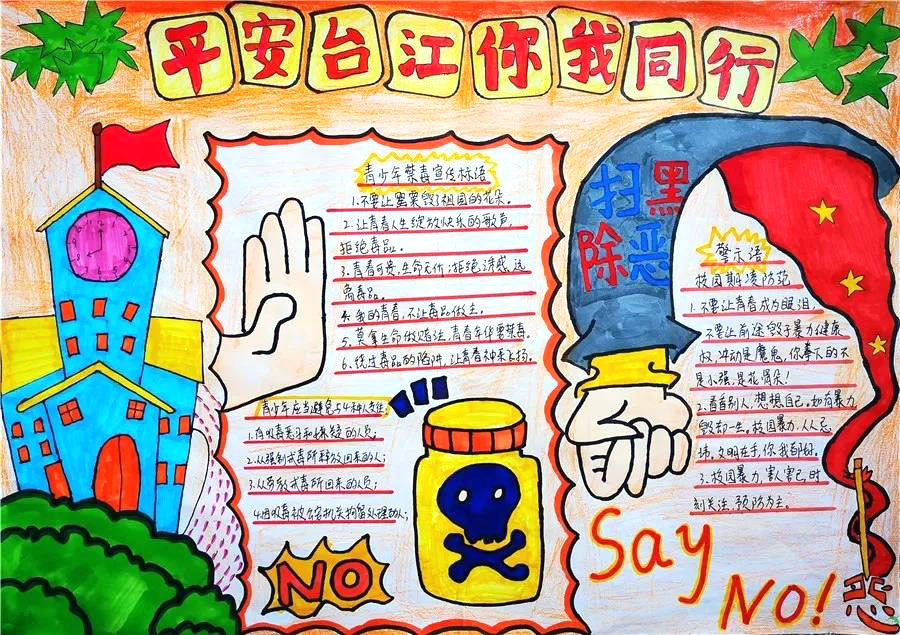 平安台江你我同行
青少年禁毒宣传标语
1.不要让罂粟毁了祖国的花朵。
2.让青春人生绽放快乐的歌声,
拒绝毒品。
3.青春可贵,生命无价;拒绝诱惑,远
离毒品。
4.我的青春,不让毒品做主。
5.莫拿生命做赌注,青春年华要禁毒。
6.绕过毒品的陷阱,让青春神采飞扬。
青少年应当避免与4种人交往:
1.有吸毒恶习和嫌疑的人员;
2.从强制戒毒所释放回来的人;
3.从劳教戒毒所回来的人员;
4.因吸毒被公安机关拘留处理的人;
NO
扫黑
除恶
警示语
校园欺凌防范
1.不要让青春成为眼泪,
不要让前途毁于暴力健康
权,冲动是魔鬼,你拳下的不
是小强,是花骨朵!
2.看看别人,想想自己,如有暴力,
毁却一生,校园暴力,人人忌
讳,文明在手,你我都好。
3.校园暴力,害人害己,时
刻关注,预防为主。
Say
No!
恶